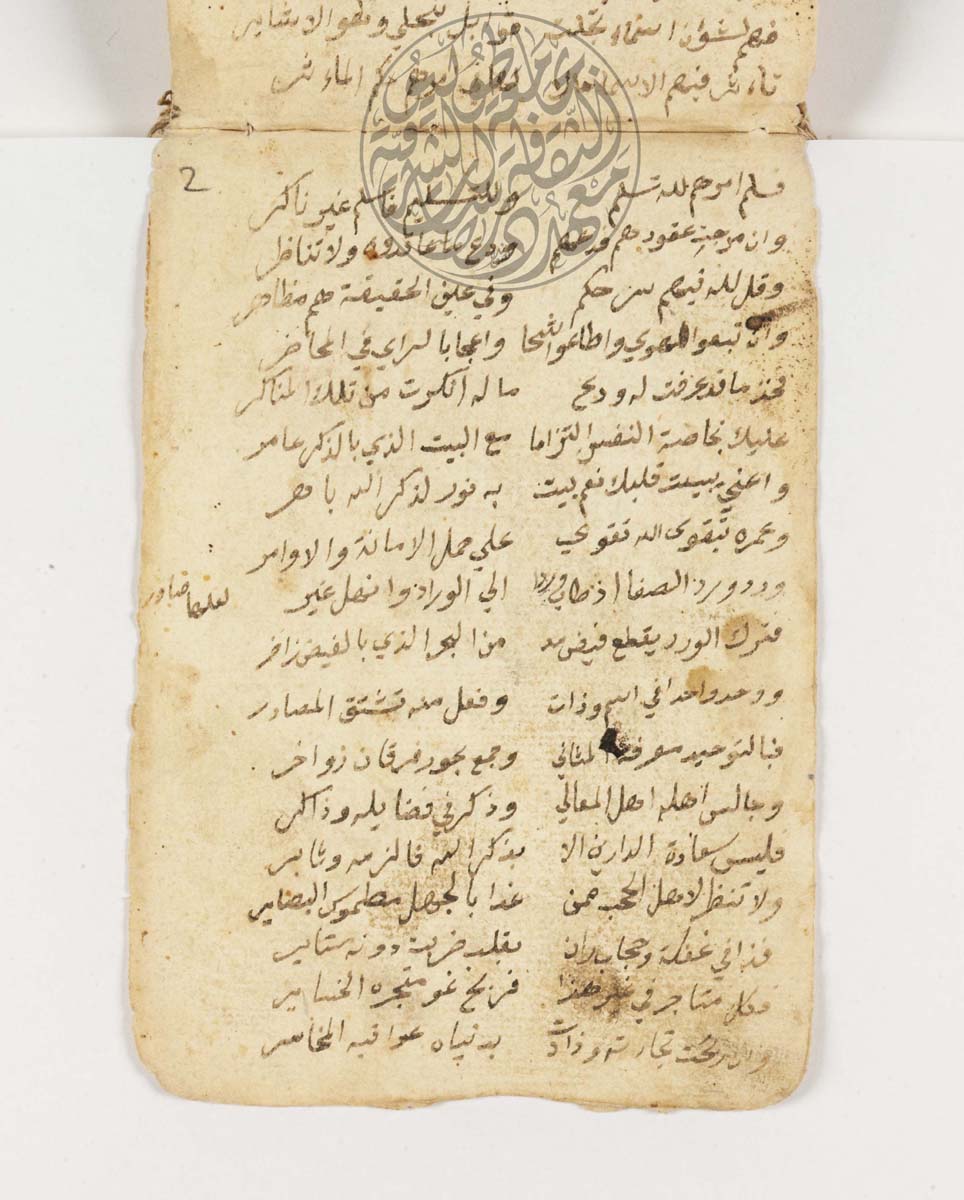 فهم لشؤن اسماء تجلت قوابل للتجلي وهو الاشاير
فيهم الاسما الماء
2
فسلم امرهم لله تسلم وللتسليم فاسلم غير ناكر
وان مرجت عقودهم فدعهم ودع ما عاقدوه ولا تناظر
وقل لله فيهم سر حكم وفي عين الحقيقة هم مظاهر
وان تبعوا الهوي واطاعوا شحا واعجابا لراي في المحاضر
فخذ ما قد عرفت له ودع ما له انكرت من تلك المناكر
عليك بخاصة النفس التزاما مع البيت الذي بالذكر عامر
واعني ببيت قلبك نعم بيت به نور لذكر الله باهر
وعمره بتقوى الله تقوي علي حمل الامانة والاوامر
ورد ورد الصفا اذ طاب وردا الي الوراد وانهل غير
لعلها صادر
فترك الورد يقطع فيض مد من البحر الذي بالفيض زاخر
ووحد واحدا في اسم وذات وفعل منه تشتق المصادر
فبالتوحيد معرفة المثاني وجمع بحور فرقان زواخر
وجالس اهله اهل المعالي وذكر في فضايله وذاكر
فليس سعادة الدارين الا بذكر الله فالزمه وثابر
ولا تنظر لاهل الحجب ممن غدا بالجهل مطموس البصاير
فذا في غفلة وحجاب ران بقلب ضربت دونه ستاير
فكل متاجر في غير هذا فربح متجره الخساير
وان ربحت تجارته وزادت بدنياه عواقبه المخاسر